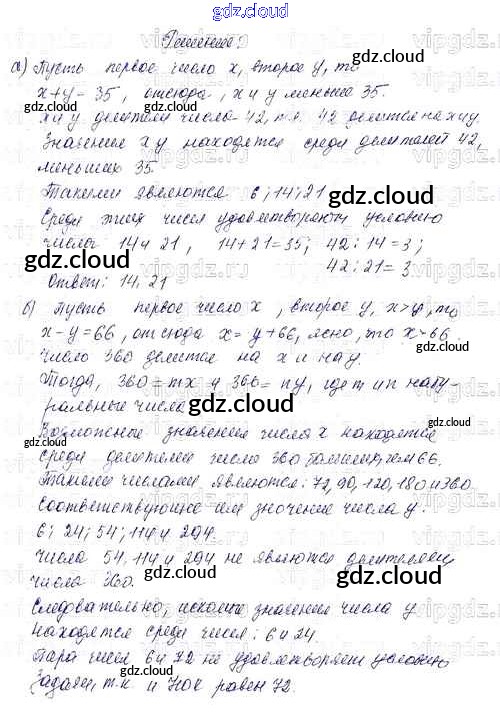 gdz.cloud
Решение:
а) Пусть первое число x, второе y, то
x+y=35, отсюда, x и y меньше 35.
x и y делители числа 42, т.к. 42 делится на x и y.
Значения x y находятся среди делителей 42,
меньших 35.
Такими являются 6; 14; 21
Среди этих чисел удовлетворяют условию
числа 14 и 21, 14+21=35; 42:14=3;
42:21=3
Ответ: 14, 21
б) Пусть первое число x, второе y, x>y, то
x-y=66, отсюда x=y+66, ясно, что x>66.
Число 360 делится на x и на y.
Тогда, 360=mx и 360=ny, где m и n нату-
ральные числа
Возможные значения числа x находятся
среди делителей числа 360 больших, чем 66.
Такими числами являются: 72, 90, 120, 180 и 360
Соответствующие им значение числа y:
6; 24; 54; 114 и 294.
Числа 54, 114 и 294 не являются делителями
числа 360.
Следовательно, искомые значения числа y
находятся среди чисел: 6 и 24.
Пара чисел 6 и 72 не удовлетворяет условию
задачи, т.к. и НОК равен 72.